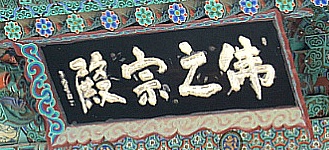 佛之宗殿